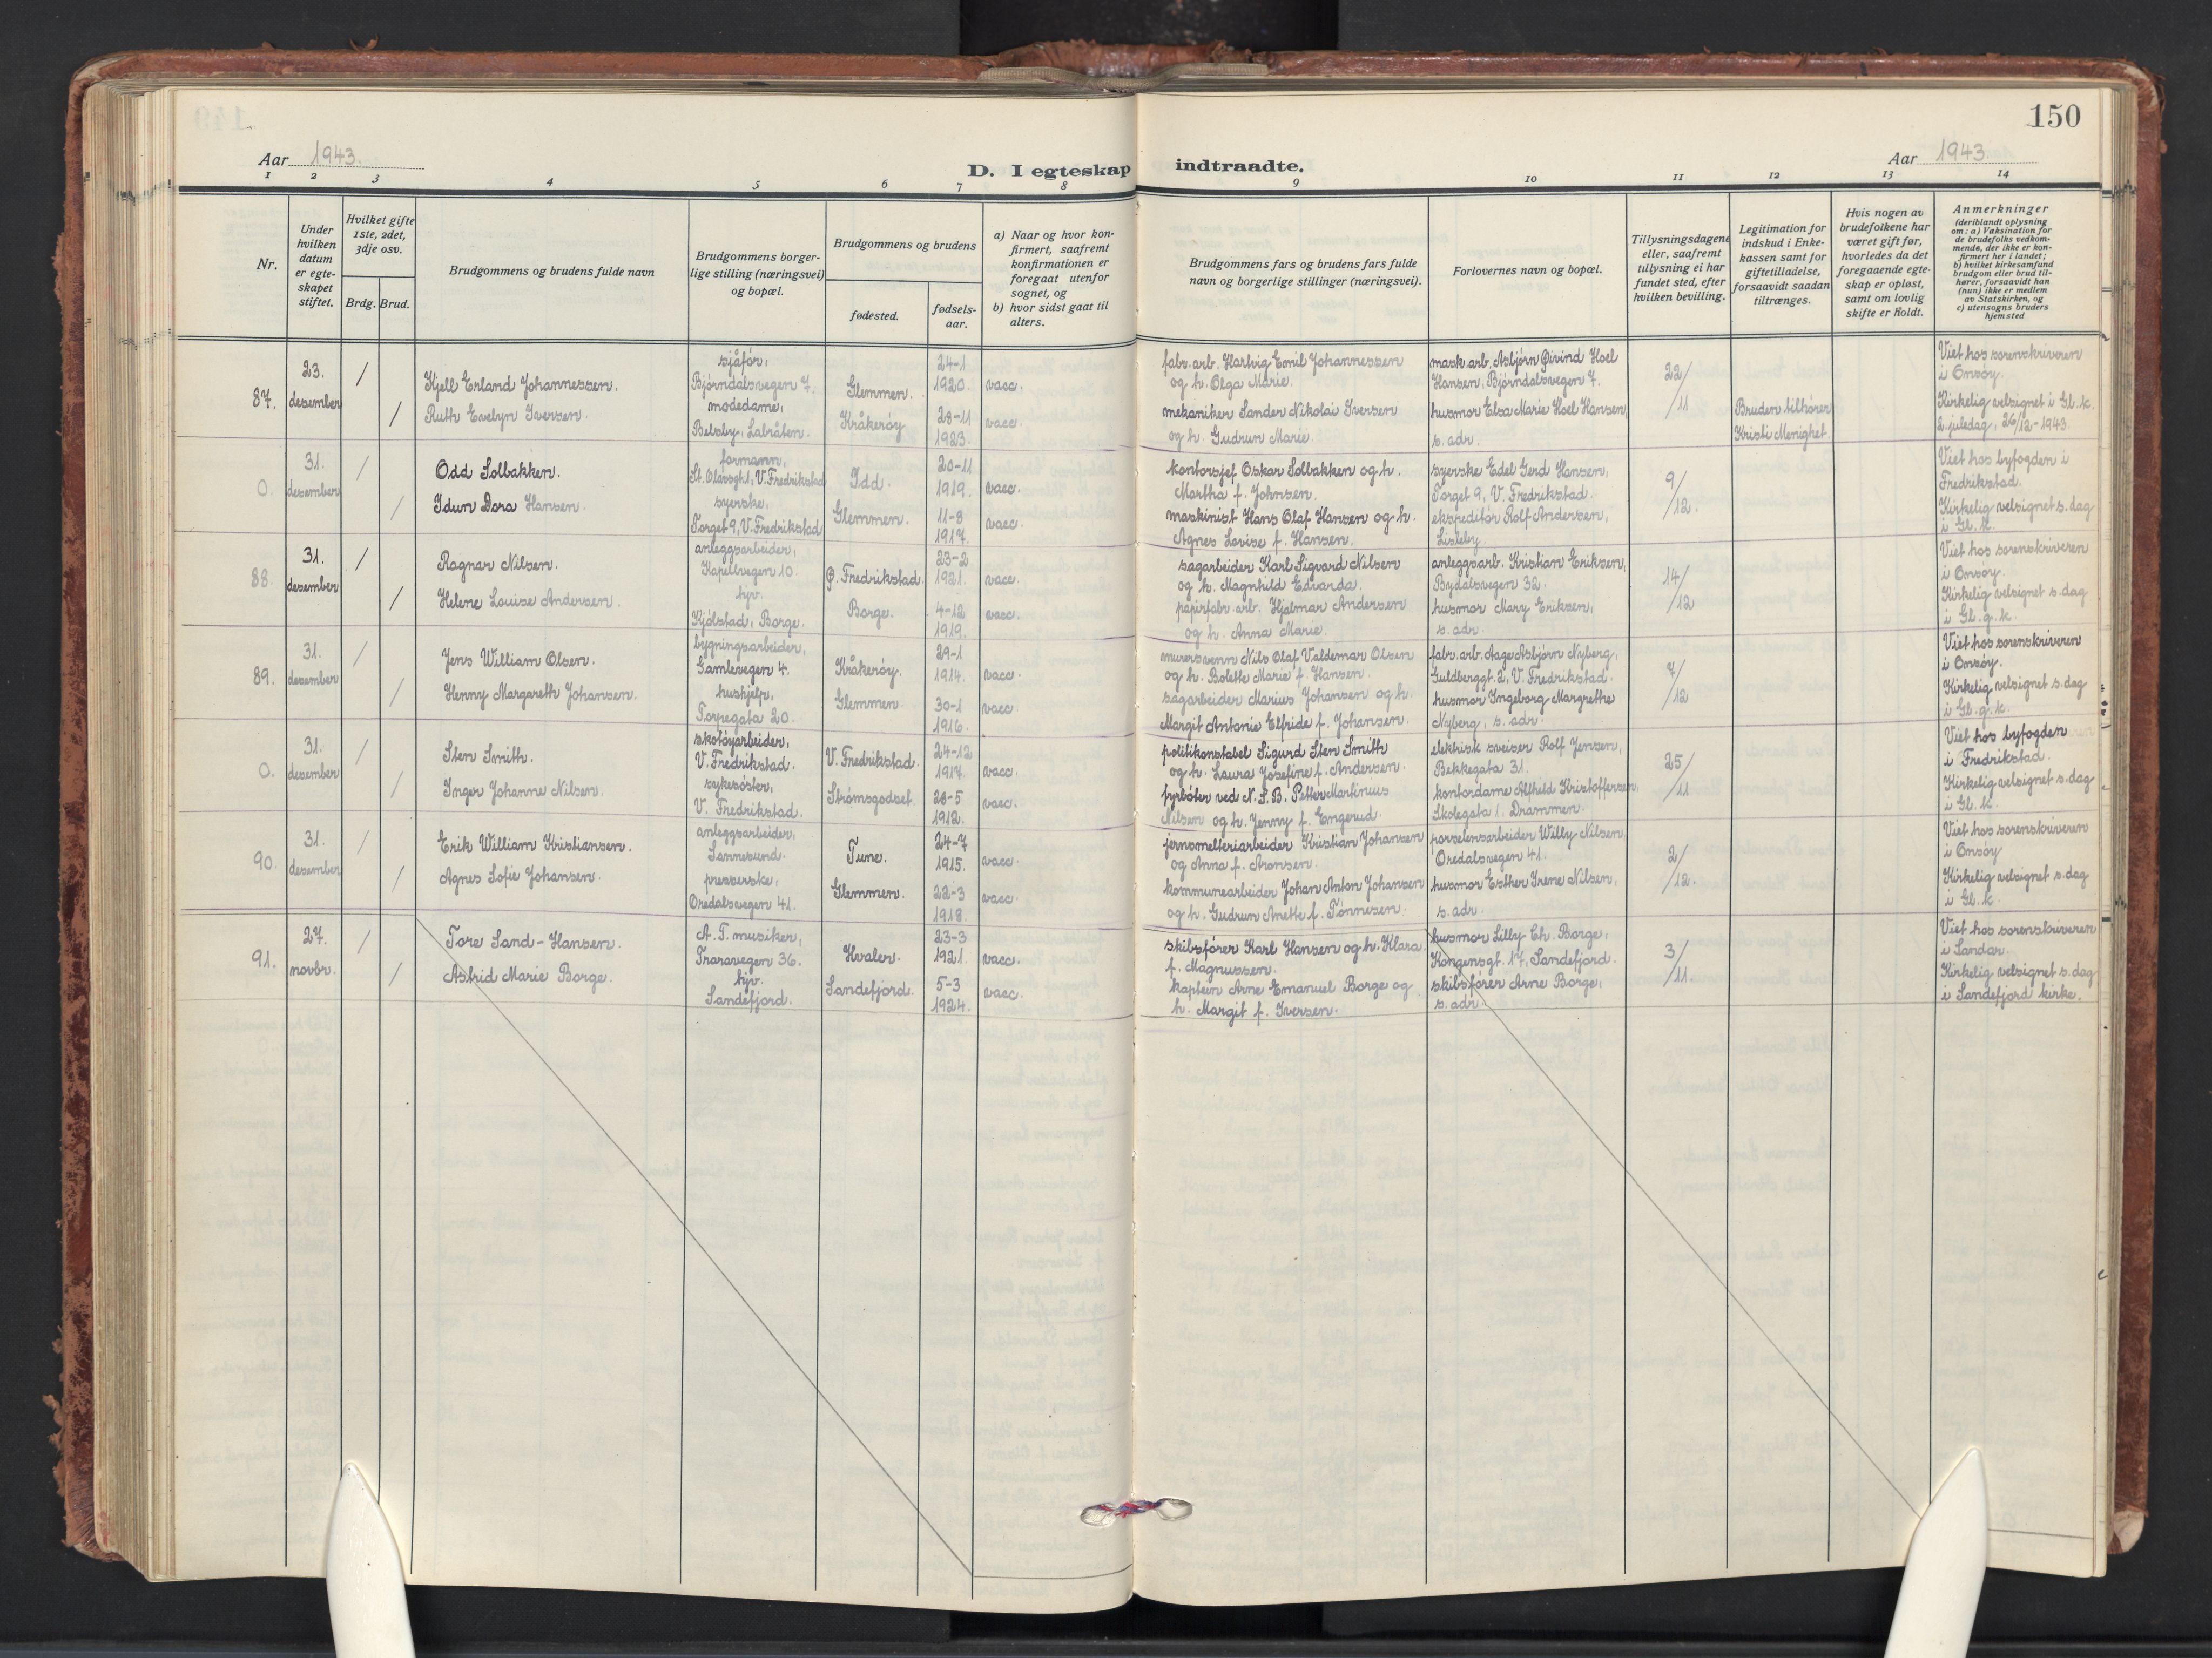 150
Aar 1943.
D. I egteskap indtraadte.
Aar 1943
1 2 3 4 5 6 7 8 9 10 11 12 13 14
Nr.
Under hvilken datum er egte- skapet stiftet.
Hvilket gifte 1ste, 2det, 3dje osv.
Brdg. Brud.
Brudgommens og brudens fulde navn
Brudgommens borger- lige stilling (næringsvei) og bopæl.
Brudgommens og brudens
fødested.
fødsels- aar.
a) Naar og hvor kon- firmert, saafremt konfirmationen er foregaat utenfor sognet, og
b) hvor sidst gaat til alters.
Brudgommens fars og brudens fars fulde navn og borgerlige stillinger (næringsvei).
Forlovernes navn og bopæl.
Tillysningsdagene eller, saafremt tillysning ei har fundet sted, efter hvilken bevilling.
Legitimation for indskud i Enke- kassen samt for giftetilladelse, forsaavidt saadan tiltrænges.
Hvis nogen av brudefolkene har været gift før, hvorledes da det foregaaende egte- skap er opløst, samt om lovlig skifte er holdt.
Anmerkninger
(deriblandt oplysning om: a) Vaksination for de brudefolks vedkom- mende, der ikke er kon- firmert her i landet; b) hvilket kirkesamfund brudgom eller brud til- hører, forsaavidt han (hun) ikke er medlem av Statskirken, og c) utensogns bruders hjemsted
87.
23. desember
/
Kjell Erland Johannessen.
sjåfør, Bjørndalsvegen 7.
Glemmen.
24-1 1920.
vacc.
fabr. arb. Hartvig Emil Johannessen og h. Olga Marie.
mask. arb. Asbjørn Øivind Hoel Hansen, Bjørndalsvegen 7.
22/11
Viet hos sorenskriveren i Onsøy.
/
Ruth Evelyn Iversen.
modedame, Belsby, Labråten.
Kråkerøy
28-11 1923.
vacc.
mekaniker Sander Nikolai Iversen og h. Gudrun Marie.
husmor Elsa Marie Hoel Hansen, s. adr.
Bruden tilhører Kristi Menighet
Kirkelig velsignet i Gl. k. 2. juledag, 26/12-1943.
0.
31. desember
/
Odd Solbakken.
formann, St. Olavsgt 1, V. Fredrikstad
Idd.
20-11 1919.
vacc.
kontorsjef Oskar Solbakken og h. Martha f. Johnsen.
syerske Edel Gerd Hansen, Torget 9, V. Fredrikstad.
9/12.
Viet hos byfogden i Fredrikstad.
/
Idun Dora Hansen.
syerske, Torget 9, V. Fredrikstad
Glemmen.
11-8 1917.
vacc.
maskinist Hans Olaf Hansen og h. Agnes Lovise f. Hansen.
ekspeditør Rolf Andersen, Lisleby.
Kirkelig velsignet s. dag i Gl. k.
88.
31. desember
/
Ragnar Nilsen.
anleggsarbeider, Kapellvegen 10.
Ø. Fredrikstad.
23-2 1921.
vacc.
sagarbeider Karl Sigvard Nilsen og h. Magnhild Edvarda.
anleggsarb. Kristian Eriksen, Bydalsvegen 32.
14/12
Viet hos sorenskriveren i Onsøy.
/
Helene Louise Andersen.
hjv. Kjølstad, Borge.
Borge.
4-12 1919.
vacc.
papirfabr. arb. Hjalmar Andersen og h. Anna Marie.
husmor Mary Eriksen, s. adr.
Kirkelig velsignet s. dag i Gl. g. k.
89.
31. desember
/
Jens William Olsen.
bygningsarbeider, Gamlevegen 4.
Kråkerøy.
29-1 1914.
vacc.
murersvenn Nils Olaf Valdemar Olsen og h. Bolette Marie f. Hansen.
fabr. arb. Aage Asbjørn Nyberg, Guldberggt. 2, V. Fredrikstad.
7/12
Viet hos sorenskriveren i Onsøy.
/
Henny Margareth Johansen.
hushjelp, Torpegata 20.
Glemmen.
30-1 1916.
vacc.
sagarbeider Marius Johansen og h. Margit Antonie Elfride f. Johansen.
husmor Ingeborg Margrethe Nyberg, s. adr.
Kirkelig velsignet s. dag i Gl. g. k.
0.
31. desember
/
Sten Smith.
skotøyarbeider, V. Fredrikstad.
V. Fredrikstad.
24-12 1917.
vacc.
politikonstabel Sigurd Sten Smith og h. Laura Josefine f. Andersen.
elektrisk sveiser Rolf Jensen, Bekkegata 31.
25/11
Viet hos byfogden i Fredrikstad.
/
Inger Johanne Nilsen.
sykesøster, V. Fredrikstad.
Strømsgodset.
28-5 1912.
vacc.
fyrbøter ved N. S. B. Petter Martinius Nilsen og h. Jenny f. Engerud.
kontordame Alfhild Kristoffersen, Skolegata 1, Drammen.
Kirkelig velsignet s. dag i Gl. k.
90.
31. desember
/
Erik William Kristiansen.
anleggsarbeider, Sannesund.
Tune.
24-7 1915.
vacc.
jernsmelteriarbeider Kristian Johansen og Anna f. Aronsen.
porselensarbeider Willy Nilsen, Oredalsvegen 41.
2/12.
Viet hos sorenskriveren i Onsøy
/
Agnes Sofie Johansen.
presserske, Oredalsvegen 41.
Glemmen.
22-3 1918.
vacc.
kommunearbeider Johan Anton Johansen og h. Gudrun Anette f. Tønnesen.
husmor Esther Irene Nilsen, s. adr.
Kirkelig velsignet s. dag i Gl. k.
91.
27. novbr.
/
Tore Sand-Hansen.
A. T. musiker, Traravegen 36.
Hvaler.
23-3 1921.
vacc.
skibsfører Karl Hansen og h. Klara f. Magnussen.
husmor Lilly Ch. Borge, Kongensgt. 17, Sandefjord.
3/11.
Viet hos sorenskriveren i Sandar.
/
Astrid Marie Borge.
hjv. Sandefjord.
Sandefjord.
5-3 1924.
vacc.
kaptein Arne Emanuel Borge og h. Margit f. Iversen.
skibsfører Arne Borge, s. adr.
Kirkelig velsignet s. dag i Sandefjord kirke.